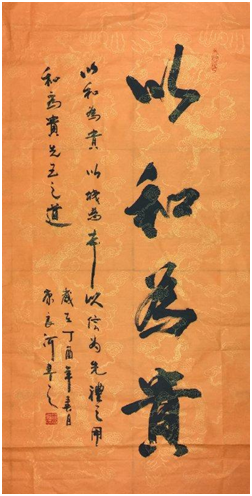 以和為貴
以和為貴以誠為本以信為先禮之用
和為貴先王之道
歲在丁酉年春月